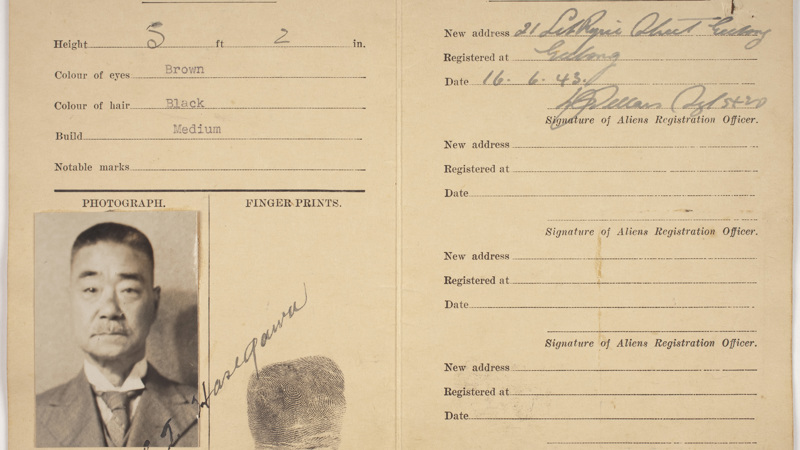 Height 5 ft 2 in.
Colour of eyes Brown
Colour of hair Black
Build Medium
Notable marks
PHOTOGRAPH.
FINGER PRINTS.
Hasegawa
New address 21 Street Geelong
Registered at Geelong
Date 16. 6. 43.
Sgt
Signature of Aliens Registration Officer.
New address
Registered at
Date
Signature of Aliens Registration Officer.
New address
Registered at
Date
Signature of Aliens Registration Officer.
New address
Registered at
Date